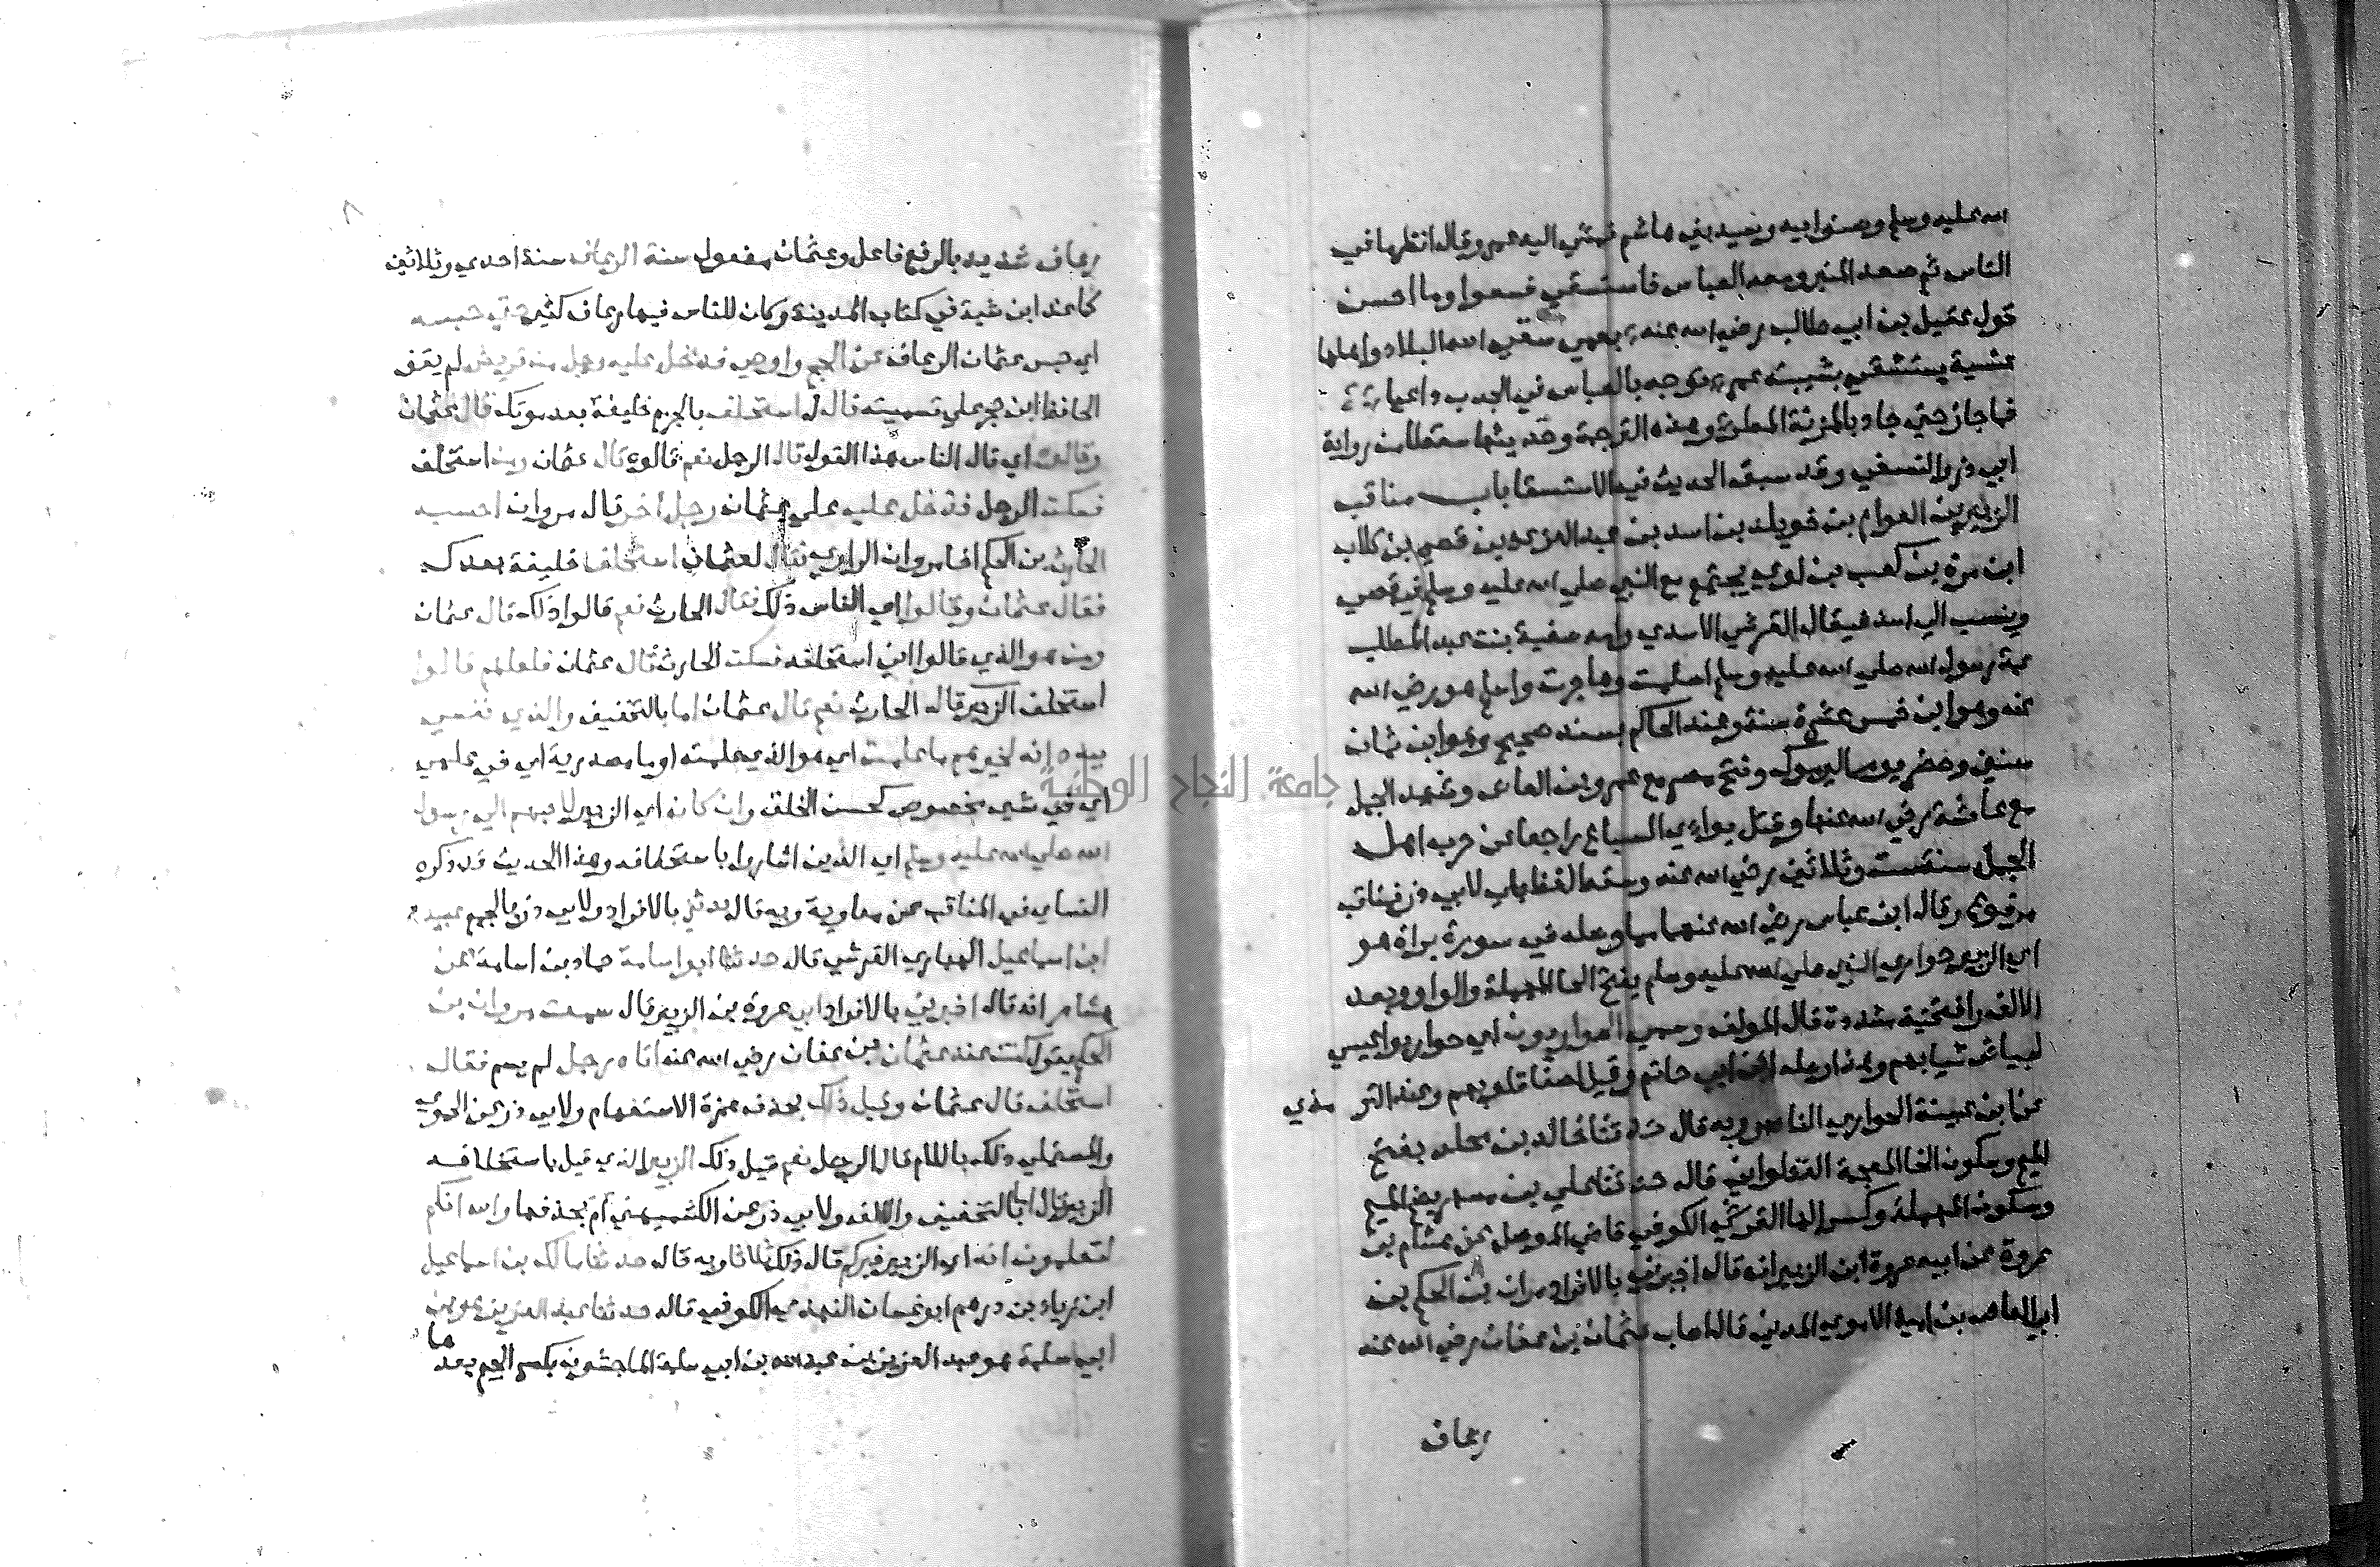 الله عليه وسلم وصنوابيه وسيد بني هاشم فمشي اليه عمر وقال انظرها في
الناس ثم صعد المنبر ومعه العباس فاستسقي فسقوا وما احسن
قول عقيل بن ابي طالب رضي الله عنه بعمي سقي الله البلاد واهلها
عشية يستسقي بشيبته عمر توجه بالعباس في الجدب داعيا
فما جاز حتي جاد بالمزنة المطر وهذه الترجمة وحديثها سقطا من رواية
ابي ذر والنسفي وقد سبق الحديث في الاستسقا باب مناقب
الزبير بن العوام بن خويلد بن اسد بن عبد العزي بن قصي بن كلاب
ابن مرة بن كعب بن لوي يجتمع مع النبي صلي الله عليه وسلم في قصي
وينسب الي اسد فيقال القرشي الاسدي وامه صفية بنت عبد المطلب
عمة رسول الله صلي الله عليه وسلم اسلمت وهاجرت واسلم هو رضي الله
عنه وهو ابن خمس عشرة سنة وعند الحاكم بسند صحيح وهو ابن ثمان
سنين وحضر يوم اليرموك وفتح مصر مع عمرو بن العاص وشهد الجمل
مع عائشة رضي الله عنها وقتل بوادي السباع راجعا عن حرب اهل
الجمل سنة ست وثلاثين رضي الله عنه وسقط لفظ باب لابي ذر فمناقب
مرفوع وقال ابن عباس رضي الله عنهما مما وصله في سورة براة هو
اي الزبير حواري النبي صلي الله عليه وسلم بفتح الحا المهملة والواو وبعد
الالف را فتحتية مشددة قال المولف وسمي الحواريون اي حواريوا عيسي
لبياض ثيابهم وهذا وصله ابن ابي حاتم وقيل لصفا قلوبهم وعند التر مذي
عن ابن عيينة الحواري الناصر وبه قال حدثنا خالد بن مخلد بفتح
الميم وسكون الخا المعجمة القطواني قال حدثنا علي بن مسهر بضم الميم
وسكون المهملة وكسر الها القرشي الكوفي قاضي الموصل عن هشام بن
عروة عن ابيه عروة ابن الزبير انه قال اخبرني بالافراد مروان بن الحكم بن
ابي العاص بن امية الاموي المدني قال اصاب عثمان بن عفان رضي الله عنه
رعاف
٨
رعاف شديد بالرفع فاعل وعثمان مفعول سنة الرعاف سنة احدي وثلاثين
كما عند ابن شبة في كتاب المدينة وكان للناس فيها رعاف كثير حتي حبسه
اي حبس عثمان الرعاف عن الحج واوصي فدخل عليه رجل من قريش لم يقف
الحافظ ابن حجر علي تسميته قال له استخلف بالجزم خليفة بعد موتك قال عثمان
وقالوه اي قال الناس هذا القول قال الرجل نعم قالوه قال عثمان ومن استخلف
فسكت الرجل فدخل عليه علي عثمان رجل اخر قال مروان احسبه
الحارث بن الحكم اخا مروان الراوي فقال لعثمان استخلف خليفة بعدك
فقال عثمان وقالوا اي الناس ذلك فقال الحارث نعم قالوا ذلك قال عثمان
ومن هو الذي قالوا اني استخلفه فسكت الحارث قال عثمان فلعلهم قالوا
استخلف الزبير قال الحارث نعم قال عثمان اما بالتخفيف والذي نفسي
بيده انه لخيرهم ما علمت اي هو الذي علمته او ما مصدرية اي في علمي
اي في شي مخصوص كحسن الخلق وان كان اي الزبير لاحبهم الي رسول
الله صلي الله عليه وسلم اي الذين اشاروا باستخلافه وهذا الحديث قد ذكره
النساي في المناقب عن معاوية وبه قال حدثني بالافراد ولابي ذر بالجمع عبيد
ابن اسماعيل الهباري القرشي قال حدثنا ابو اسامة حماد بن اسامة عن
هشام انه قال اخبرني بالافراد ابي عروة بن الزبير قال سمعت مروان بن
الحكم يقول كنت عند عثمان بن عفان رضي الله عنه اتاه رجل لم يسم فقال
استخلف قال عثمان وقيل ذلك بحذف همزة الاستفهام ولابي ذر عن الحموي
والمستملي وذلك باللام قال الرجل نعم قيل ذلك الزبير الذي قيل باستخلافه
الزبير قال اما بالتخفيف والالف ولابي ذر عن الكشميهني ام بحذفها والله انكم
لتعلمون انه اي الزبير خيركم قال ذلك ثلاثا وبه قال حدثنا مالك بن اسماعيل
ابن زياد بن درهم ابو غسان النهدي الكوفي قال حدثنا عبد العزيز هو بن
ابي سلمة هو عبد العزيز بن عبد الله بن ابي سلمة الماجشون بكسر الجيم بعدها
جامعة النجاح الوطنية